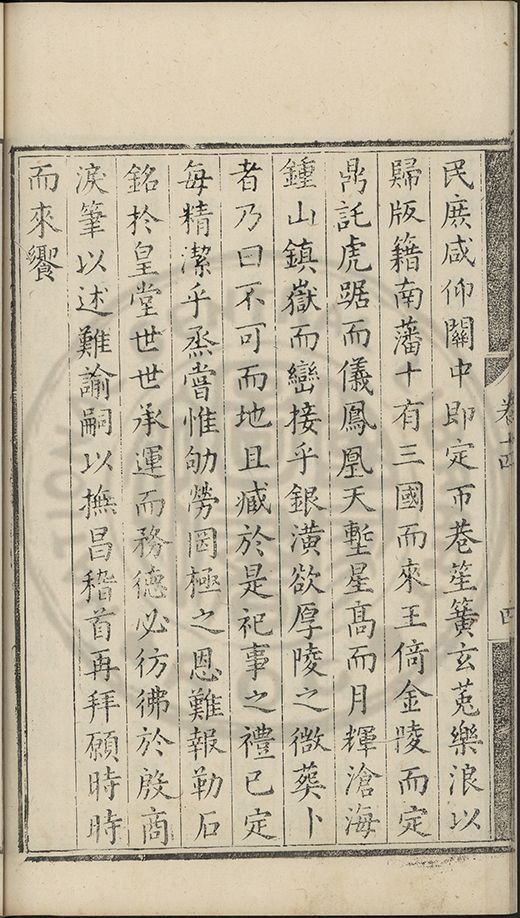 民庶咸仰關中即定市巷笙簧玄菟樂浪以
歸版籍南藩十有三國而來王倚金陵而定
鼎託虎踞而儀鳳凰天塹星髙而月輝滄海
鍾山鎮嶽而巒接乎銀潢欲厚陵之微葬卜
者乃曰不可而地且臧於是祀事之禮已定
每精潔乎烝嘗惟劬勞罔極之恩難報勒石
銘於皇堂世世承運而務德必彷彿於殷商
淚筆以述難諭嗣以撫昌稽首再拜願時時
而來饗
卷十四
四